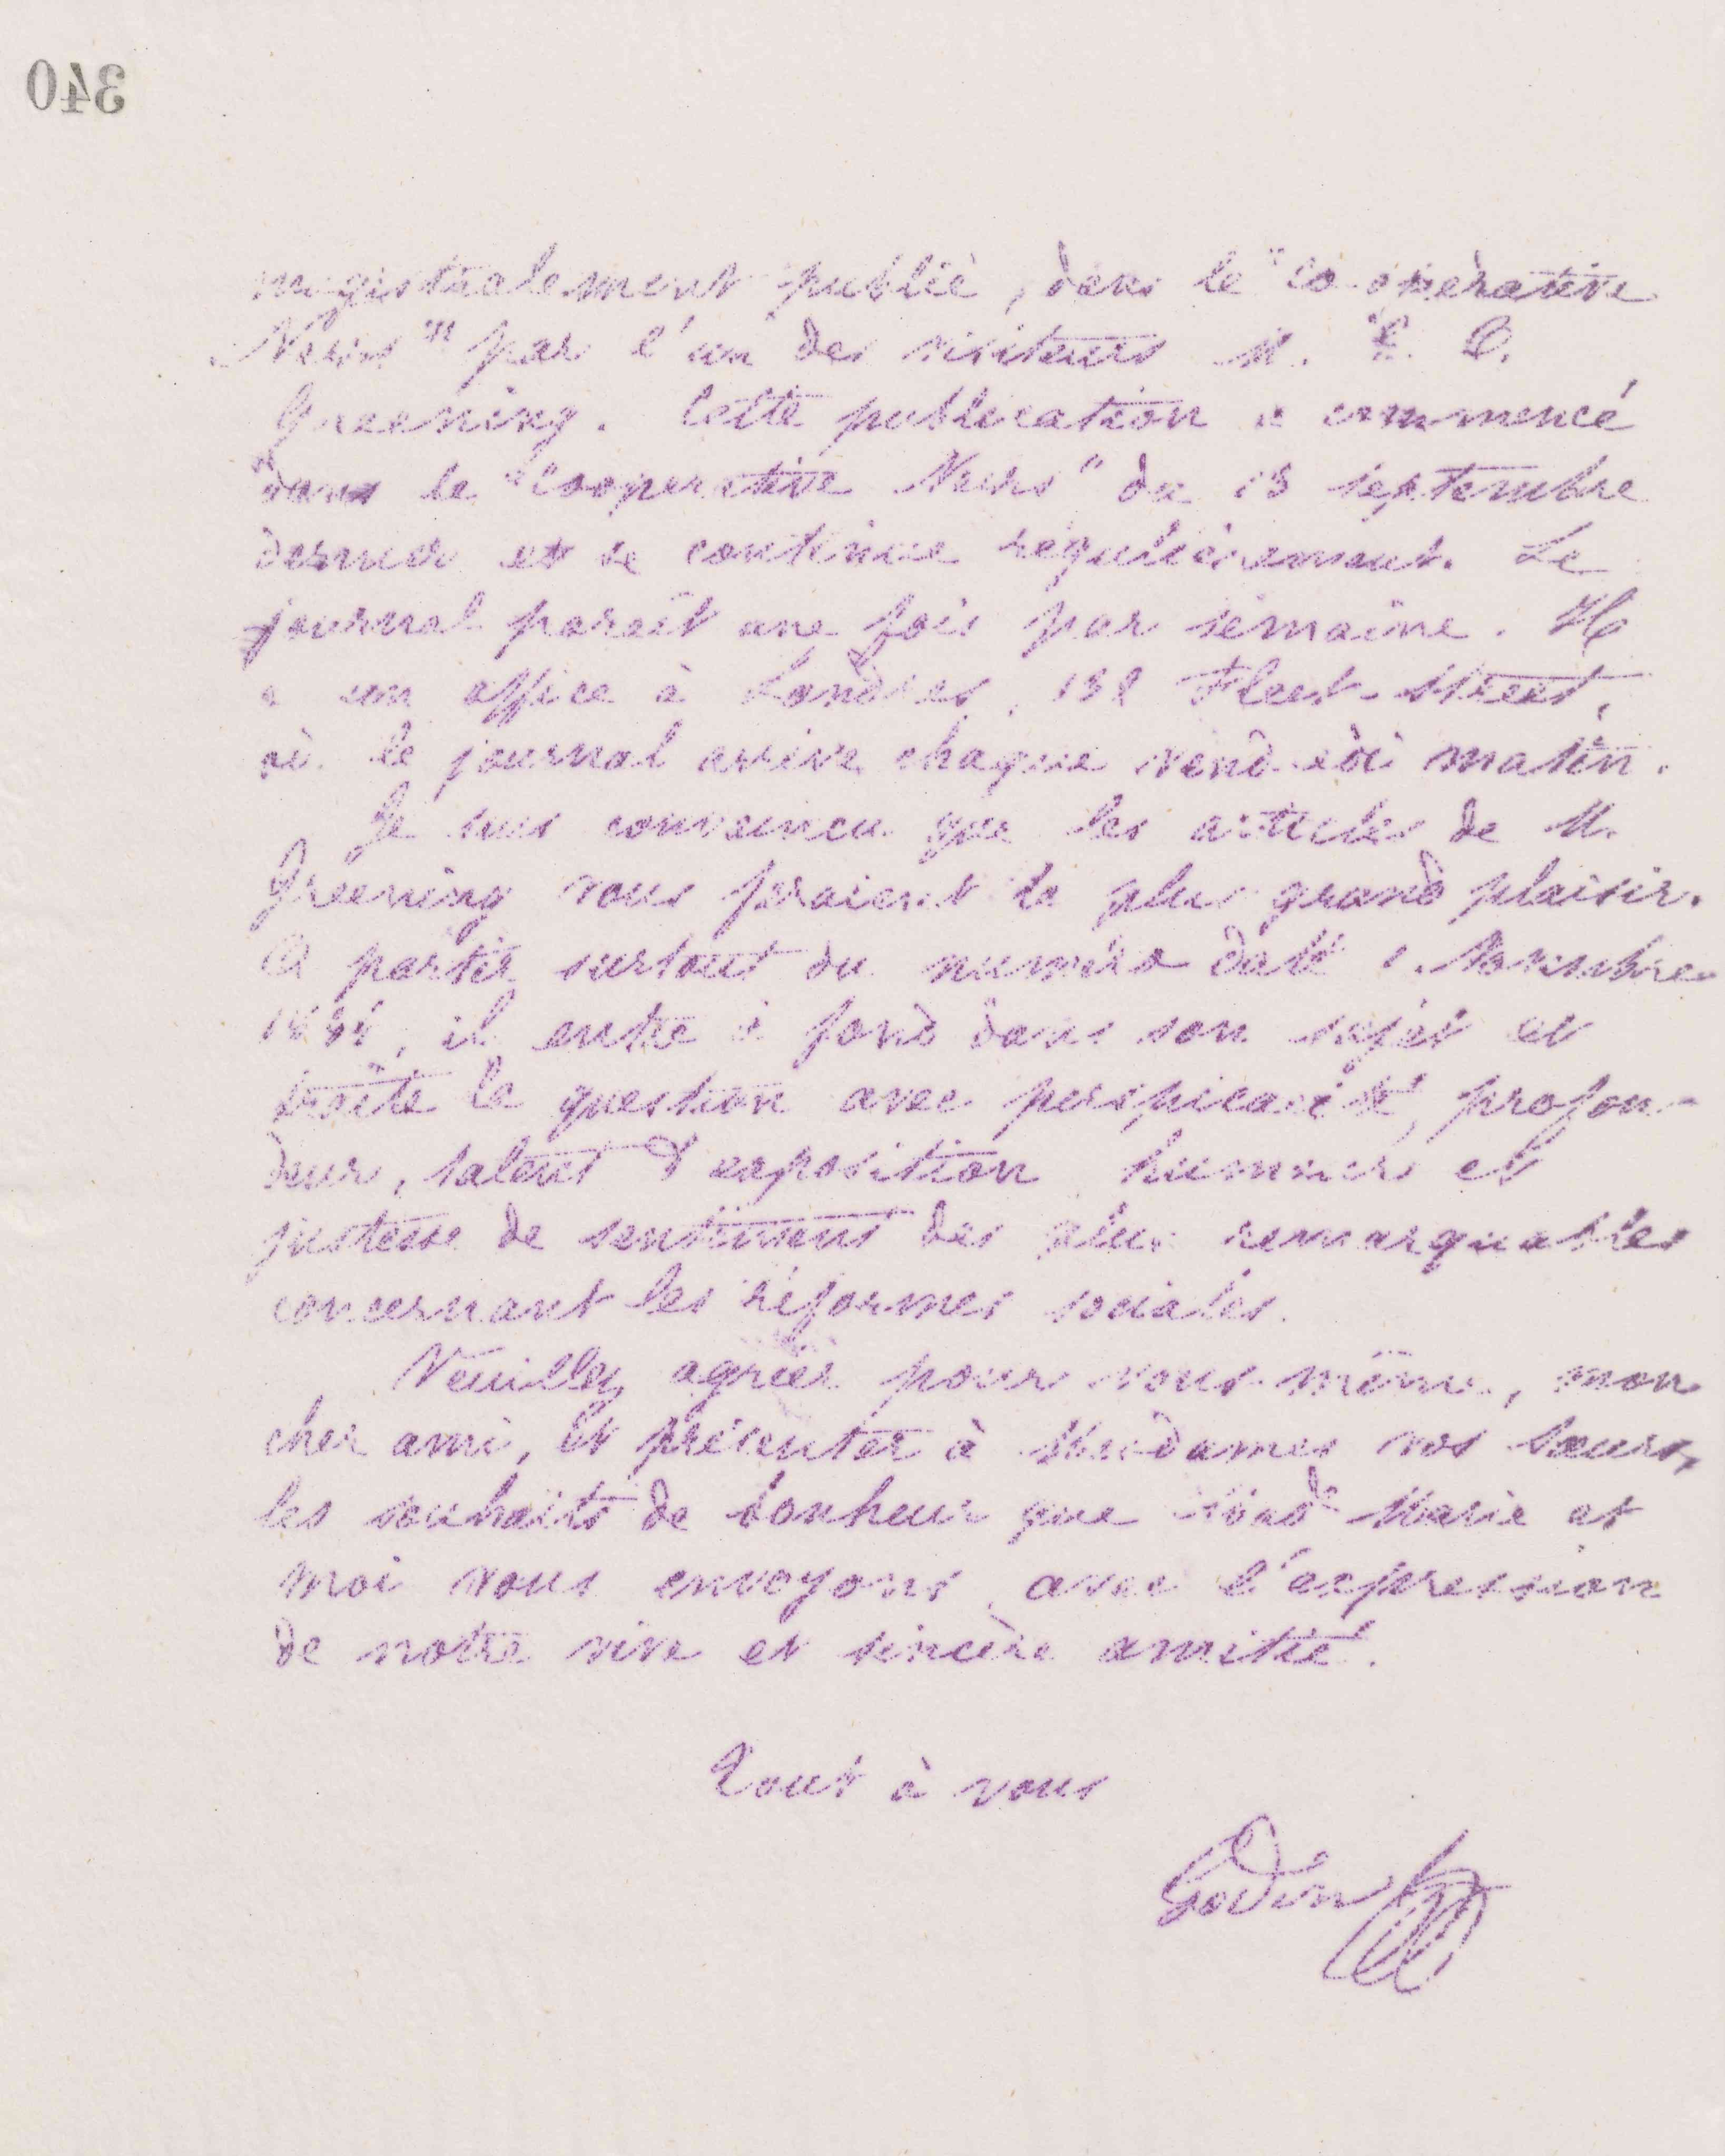 340
magistralement publié, dans le "Coopérative
News" par l'un des visiteurs M. E. O.
Greening. Cette publication a commencé
dans le "Cooperative News" du 13 septembre
dernier et se continue régulièrement. Le
journal paraît une fois par semaine. Il
a un office à Londres, 138 Fleet-Street,
où le journal arrive chaque vendredi matin.
Je suis convaincu que les articles de M.
Greening vous feraient le plus grand plaisir.
A partir surtout du numéro daté 1. Novembre
1884, il entre à fond dans son sujet et
traite la question avec perspicacité, profon-
deur, talent d'exposition humour et
justesse de sentiment des plus remarquables
concernant les réformes sociales.
Veuillez agréer pour vous-même, mon
cher ami, et présenter à Mesdames vos sœurs,
les souhaits de bonheur que Made Marie et
moi vous envoyons avec l'expression
de notre vive et sincère amitié.
Tout à vous
Godin